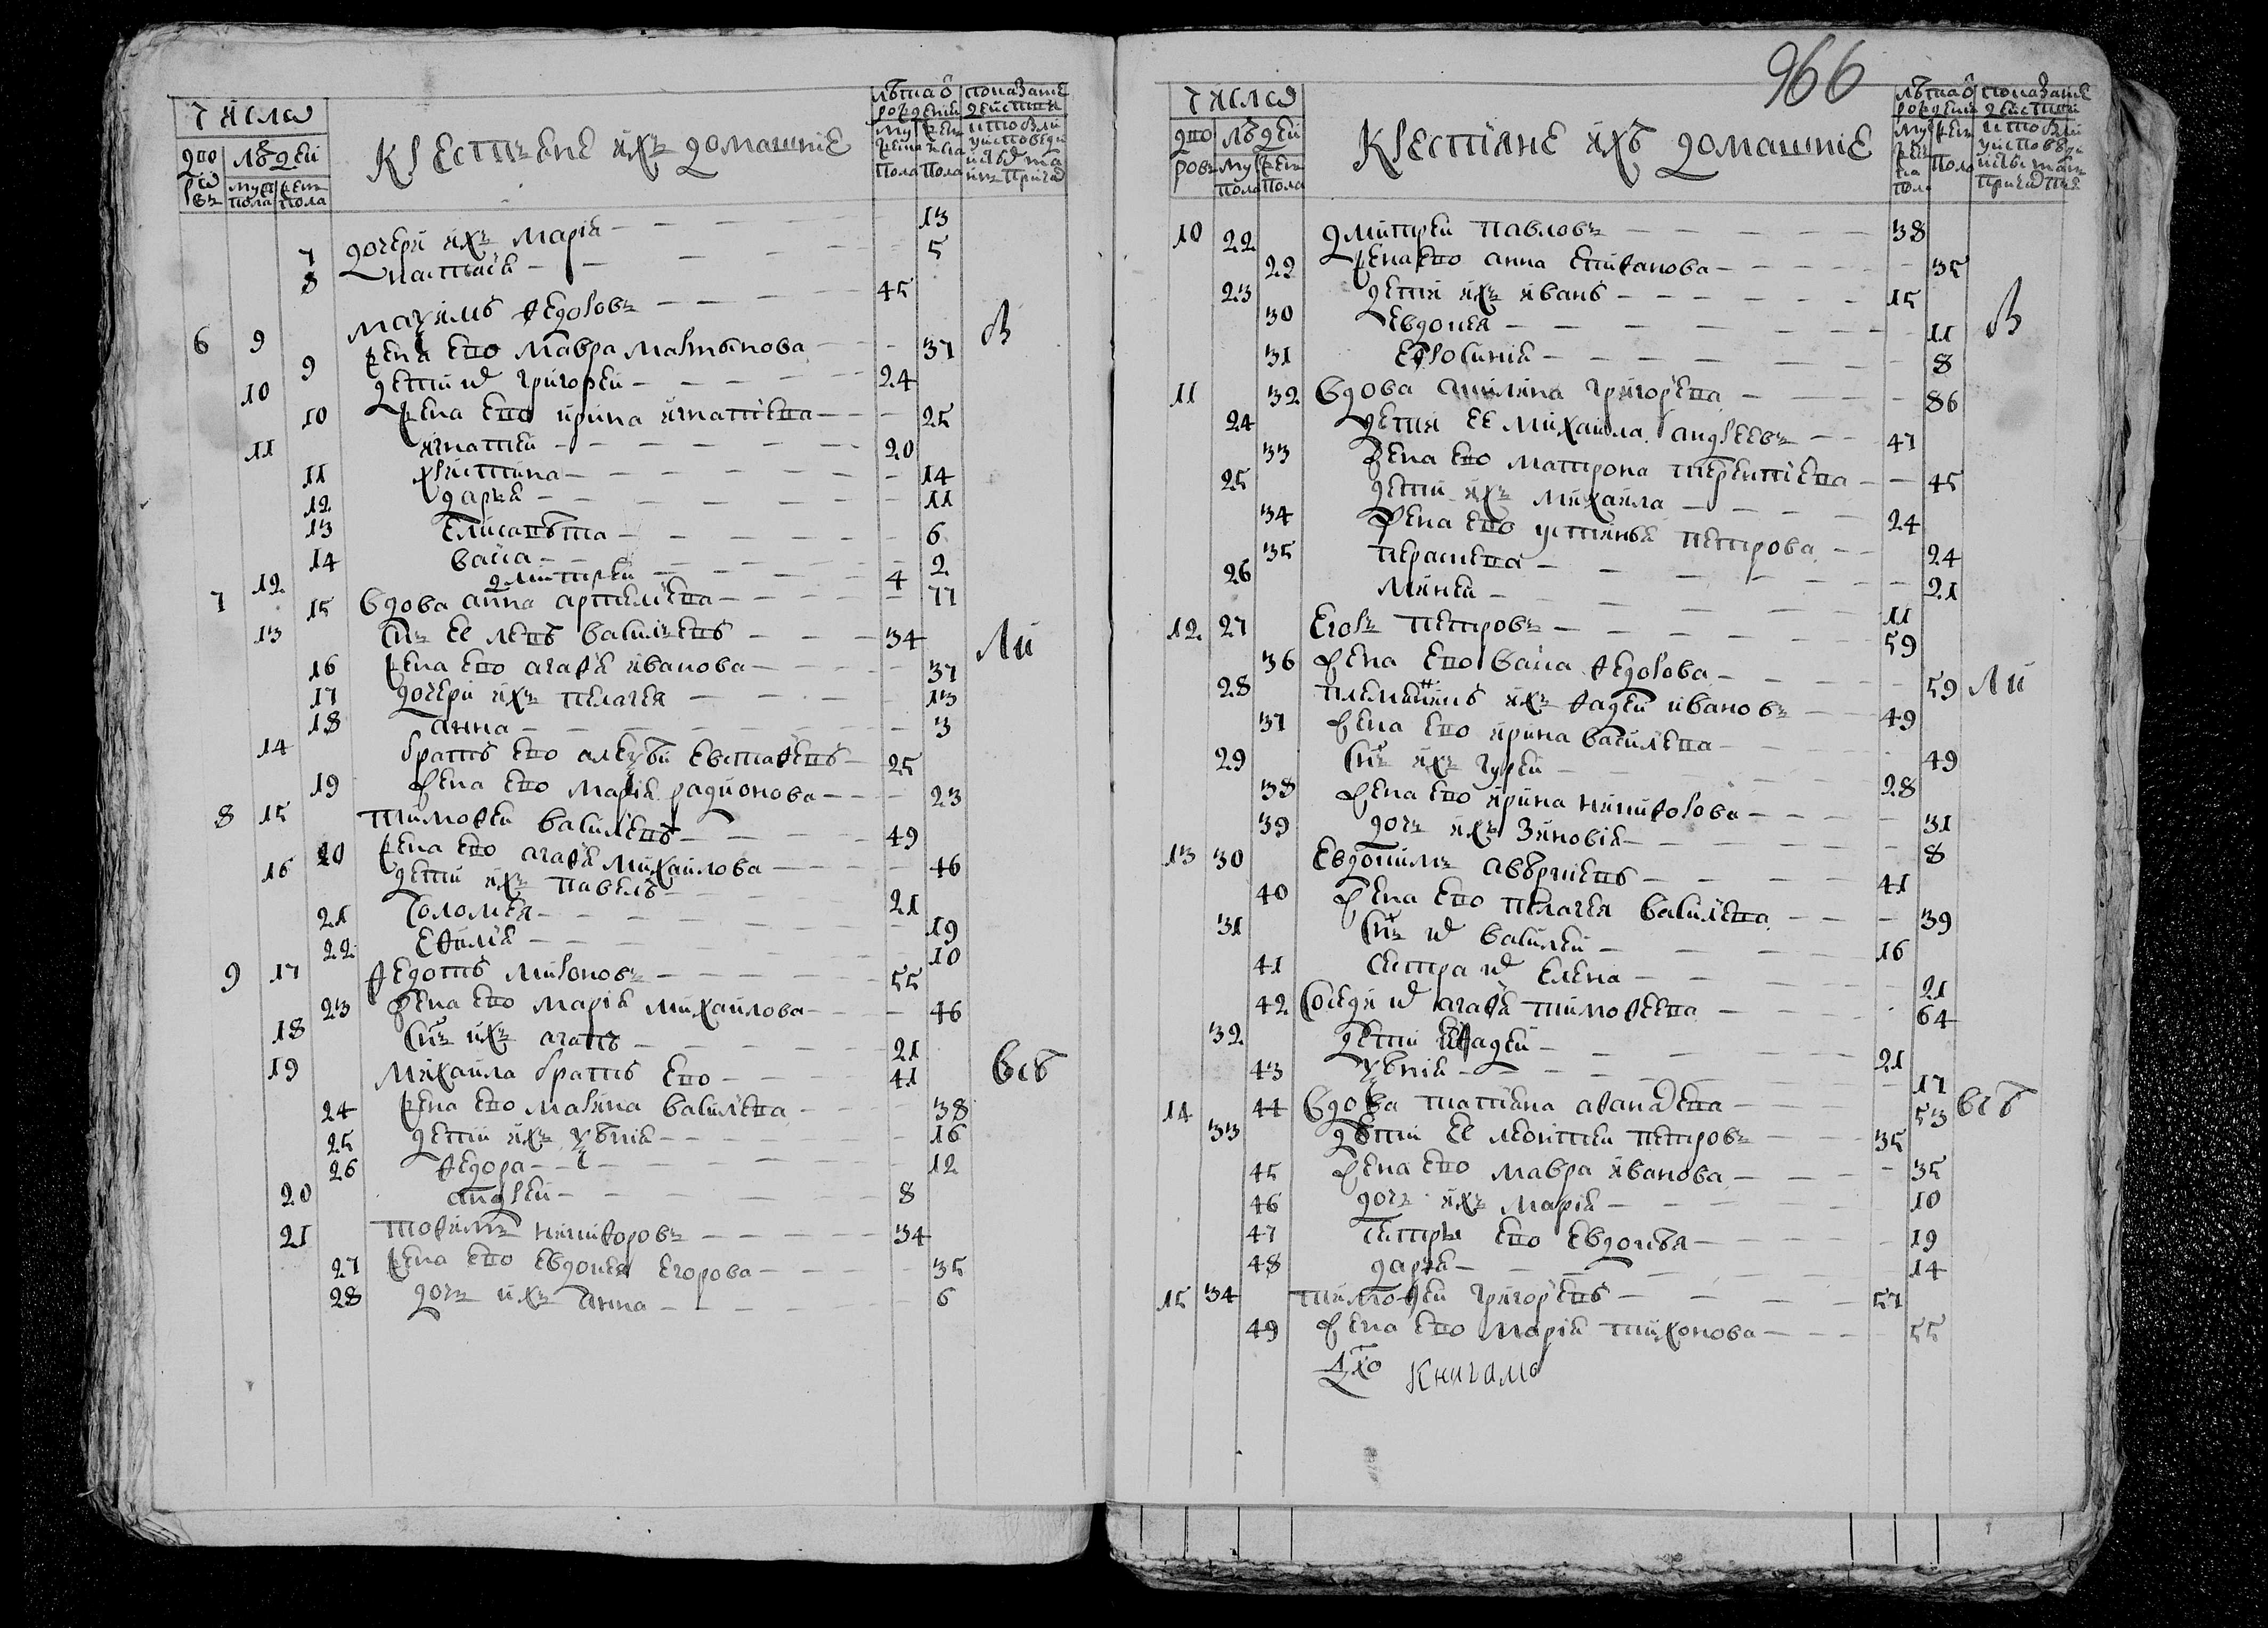 числа
дворовъ
людей
муж пола
жен пола
Крестьяне ихъ домашние
лѣта от рождения
муж пола
жен пола
7 дочери ихъ Марія 13
8 Настасія 5
6 9 Маѯимъ Ѳедоровъ 45
9 жена ево Мавра Мартынова 37
10 дети их Григорей 24
10 жена ево Ирина Игнатиева 25
11 Игнатей 20
11 Христина 14
12 Дарья 11
13 Елисавѣта 6
14 Васса 2
12 Дмитрей 4
7 15 вдова Анна Артемиева 77
13 снъ ее Левъ Василиевъ 34
16 жена ево Агаѳия Иванова 37
17 дочери ихъ Пелагея 13
18 Анна 3
14 братъ ево Алеѯѣй Евстаѳевъ 25
19 жена ево Марія Радионова 23
8 15 Тимоѳей Василиевъ 49
20 жена ево Агаѳия Михаилова 46
16 дети ихъ Павелъ 21
21 Соломея 19
22 Еѳимія 10
9 17 Ѳедотъ Миронов 55
23 жена ево Марія Михаилова 46
18 снъ ихъ Агапъ 21
19 Михаила братъ ево 41
24 жена ево Марина Василиева 38
25 дети ихъ Ѯѣнія 16
26 Ѳедора 12
20 Андрей 8
21 Тоѳимъ Никиѳоровъ 34
27 жена ево Евдокея Егорова 35
28 дочь ихъ Анна 6
966
числа
дворовъ
людей
муж пола
жен пола
Крестіяне ихъ домашніе
лѣта от рождения
10 22 Дмитрей Павловъ 38
29 жена ево Анна Епиѳанова 35
23 дети ихъ Иванъ 15
30 Евдокея 11
31 Еѳросинія 8
11 32 вдова Акилина Григорева 86
24 дети ее Михаила Андреевъ 47
33 жена ево Матрона Терентиева 45
25 дети ихъ Михаила 24
34 жена ево Устинья Петрова 24
35 Парасковя 21
26 Минеи 11
12 27 Егоръ Петровъ 59
36 жена ево Васса Ѳедорова 59
28 племянникъ ихъ Ѳадей Ивановъ 49
37 жена ево Ирина Василиева 49
29 снъ ихъ Гурей 28
38 жена ево Ирина Никиѳорова 31
39 дочь ихъ Зиновія 8
13 30 Евдокимъ Авѣркиевъ 41
40 жена ево Пелагея Василиева 39
31 снъ их Василей 16
41 сестра их Елена 21
42 соседи их Агаѳия Тимоѳеева 64
32 дети Ѳадей 21
43 Ѯѣнія 17
14 44 вдова Татияна Аѳанасиева 53
33 дѣти ее Леонтей Петровъ 35
45 жена ево Мавра Иванова 35
46 дочь ихъ Марія 10
47 сестры ево Евдокѣя 19
48 Дарья 14
15 34 Тимоѳей Григорьевъ 57
49 жена ево Марія Тихонова 55